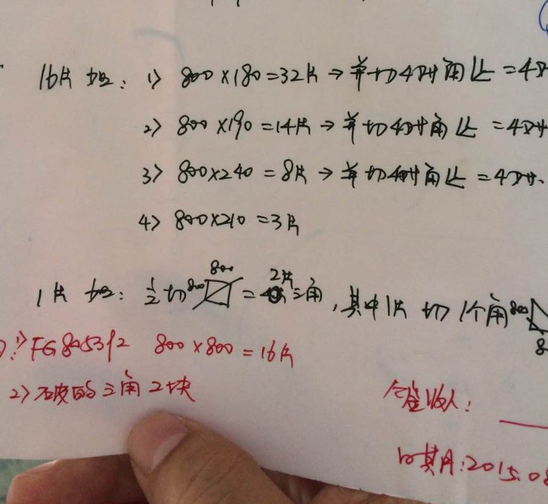 16片地: 1> 800×180=32片→并切4对角 =4对
2> 800×190=14片→并切4对角 =4对
3> 800×240=8片→并切4对角 =4对
4> 800×210=3片
1片地: 1/2切 800 800 = 2片三角, 其中1片切1个角 800 8
1> FG805392 800×800=16片
2> 破的三角2块
签收人:
日期:2015.08